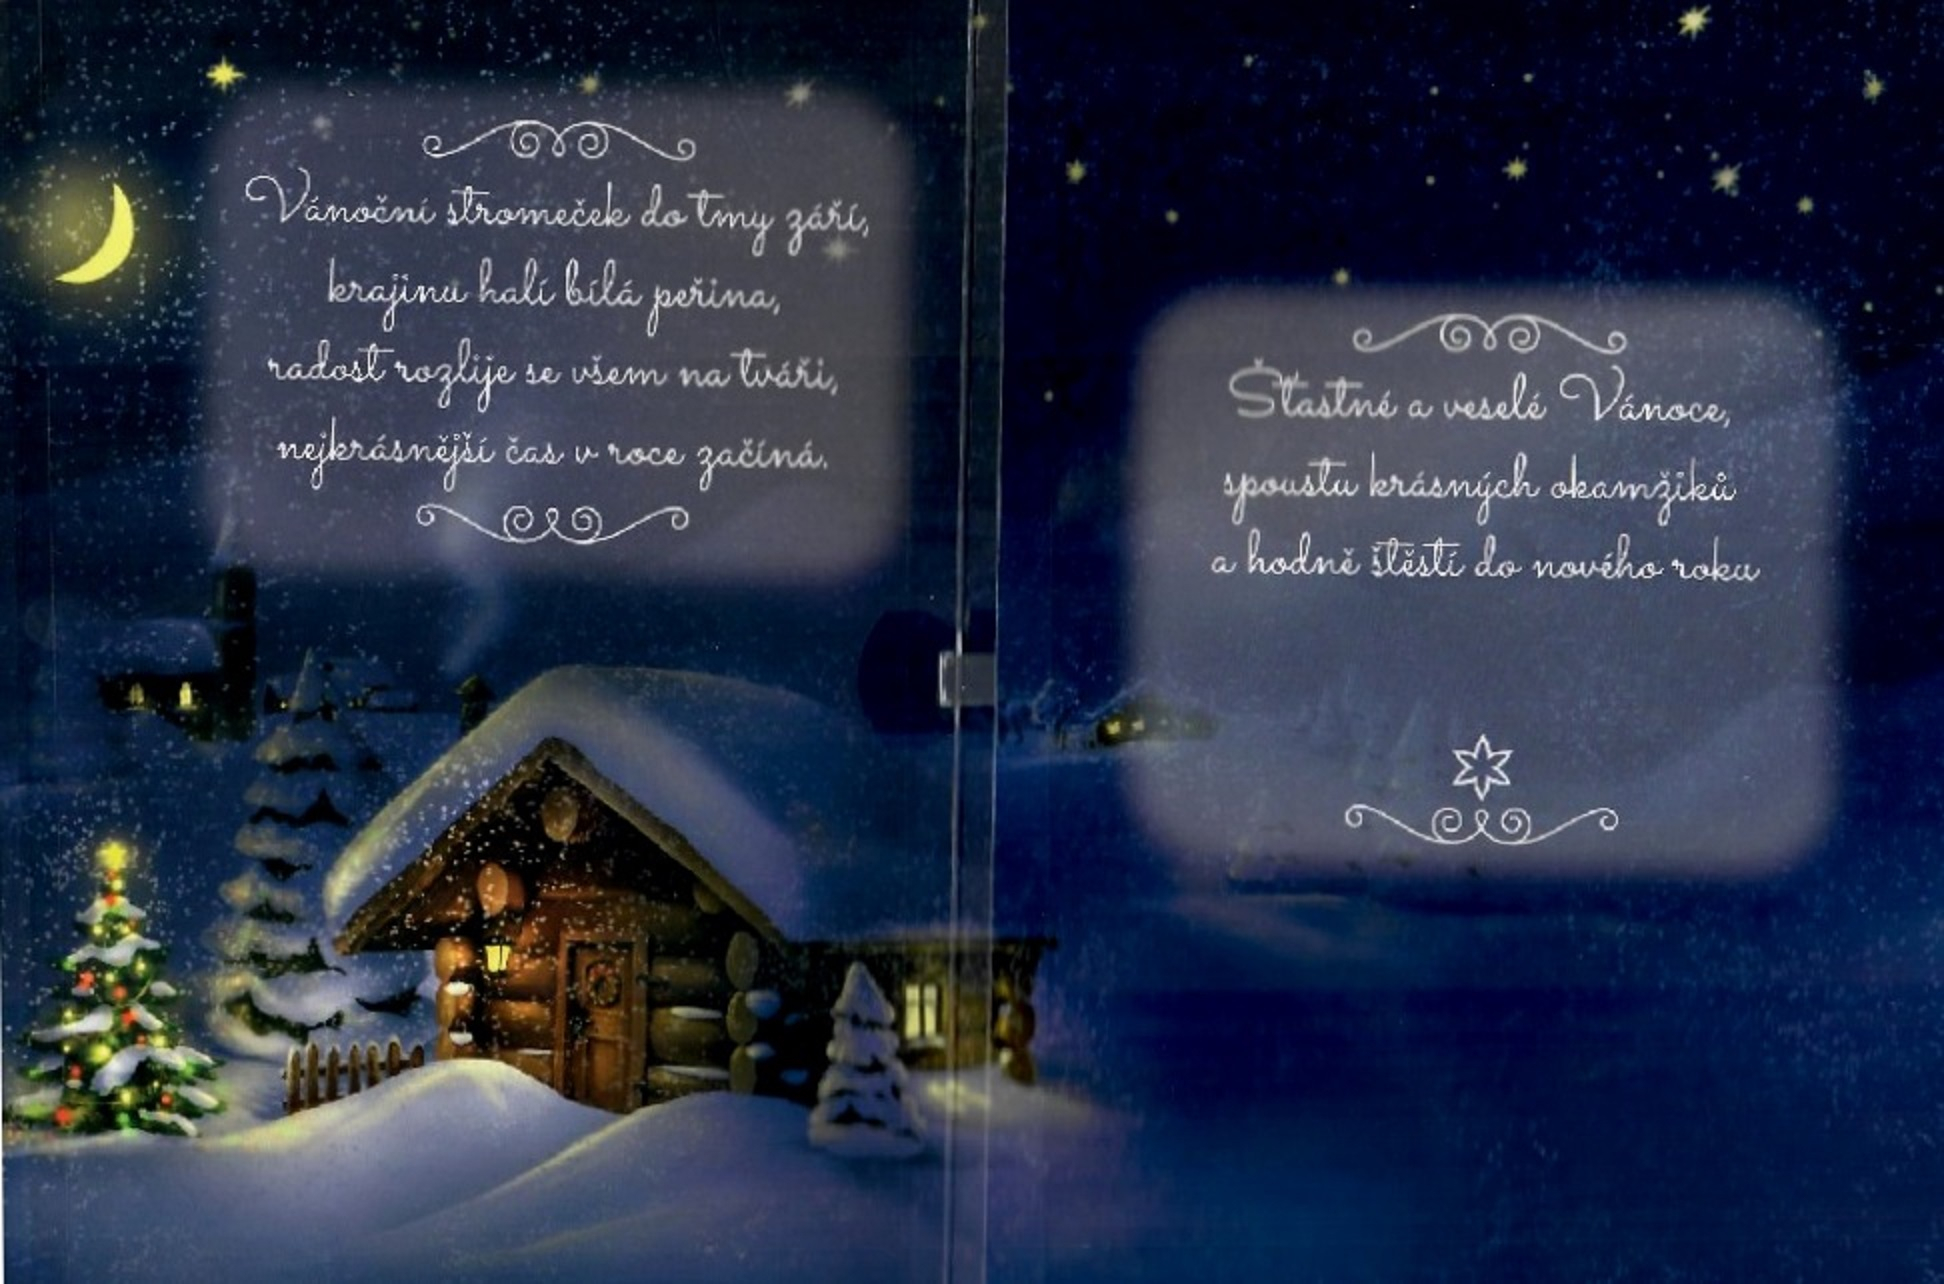 Vánoční stromeček do tmy září,
krajinu halí bílá peřina,
radost rozlije se všem na tváři,
nejkrásnější čas v roce začíná.
Šťastné a veselé Vánoce,
spoustu krásných okamžiků
a hodně štěstí do nového roku